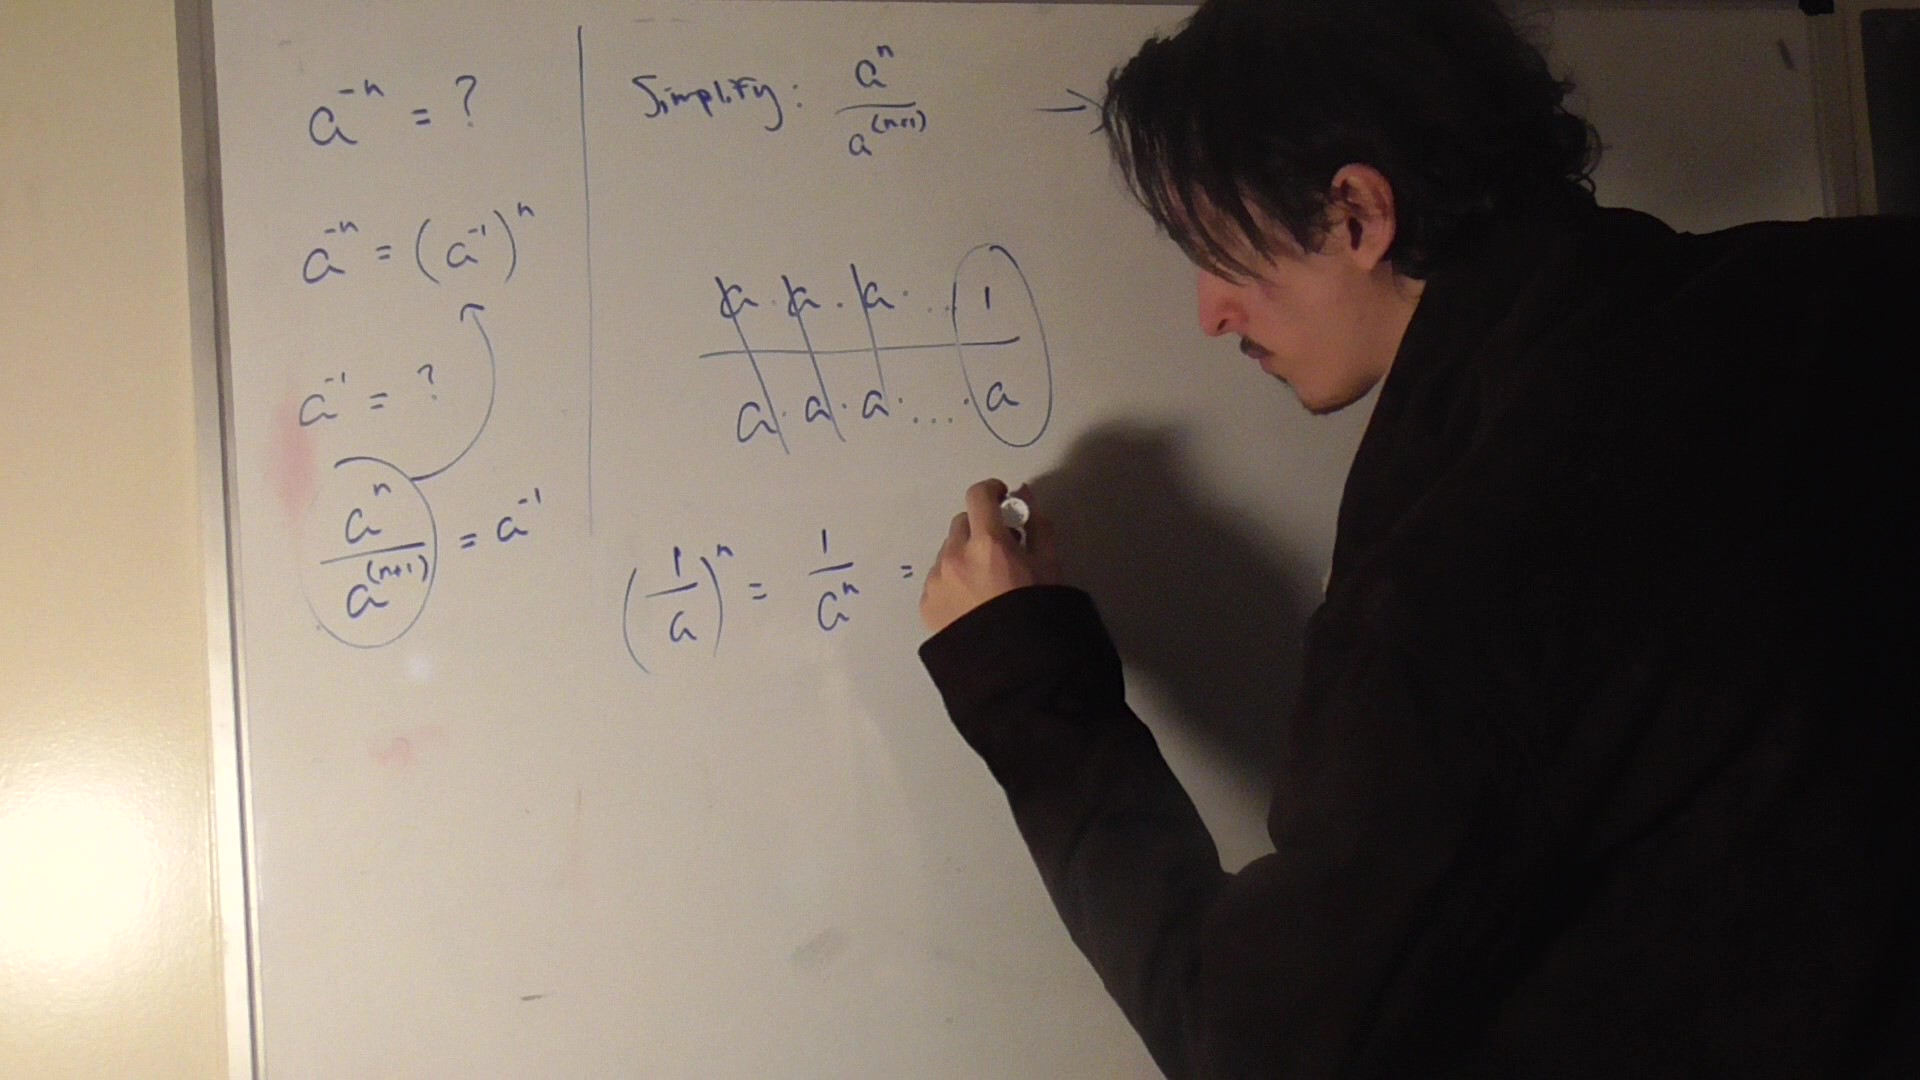 a⁻ⁿ = ?
a⁻ⁿ = (a⁻¹)ⁿ
a⁻¹ = ?
aⁿ / a⁽ⁿ⁺¹⁾ = a⁻¹
Simplify: aⁿ / a⁽ⁿ⁺¹⁾ →
a · a · a · ... 1
a · a · a · ... · a
(1/a)ⁿ = 1/aⁿ =